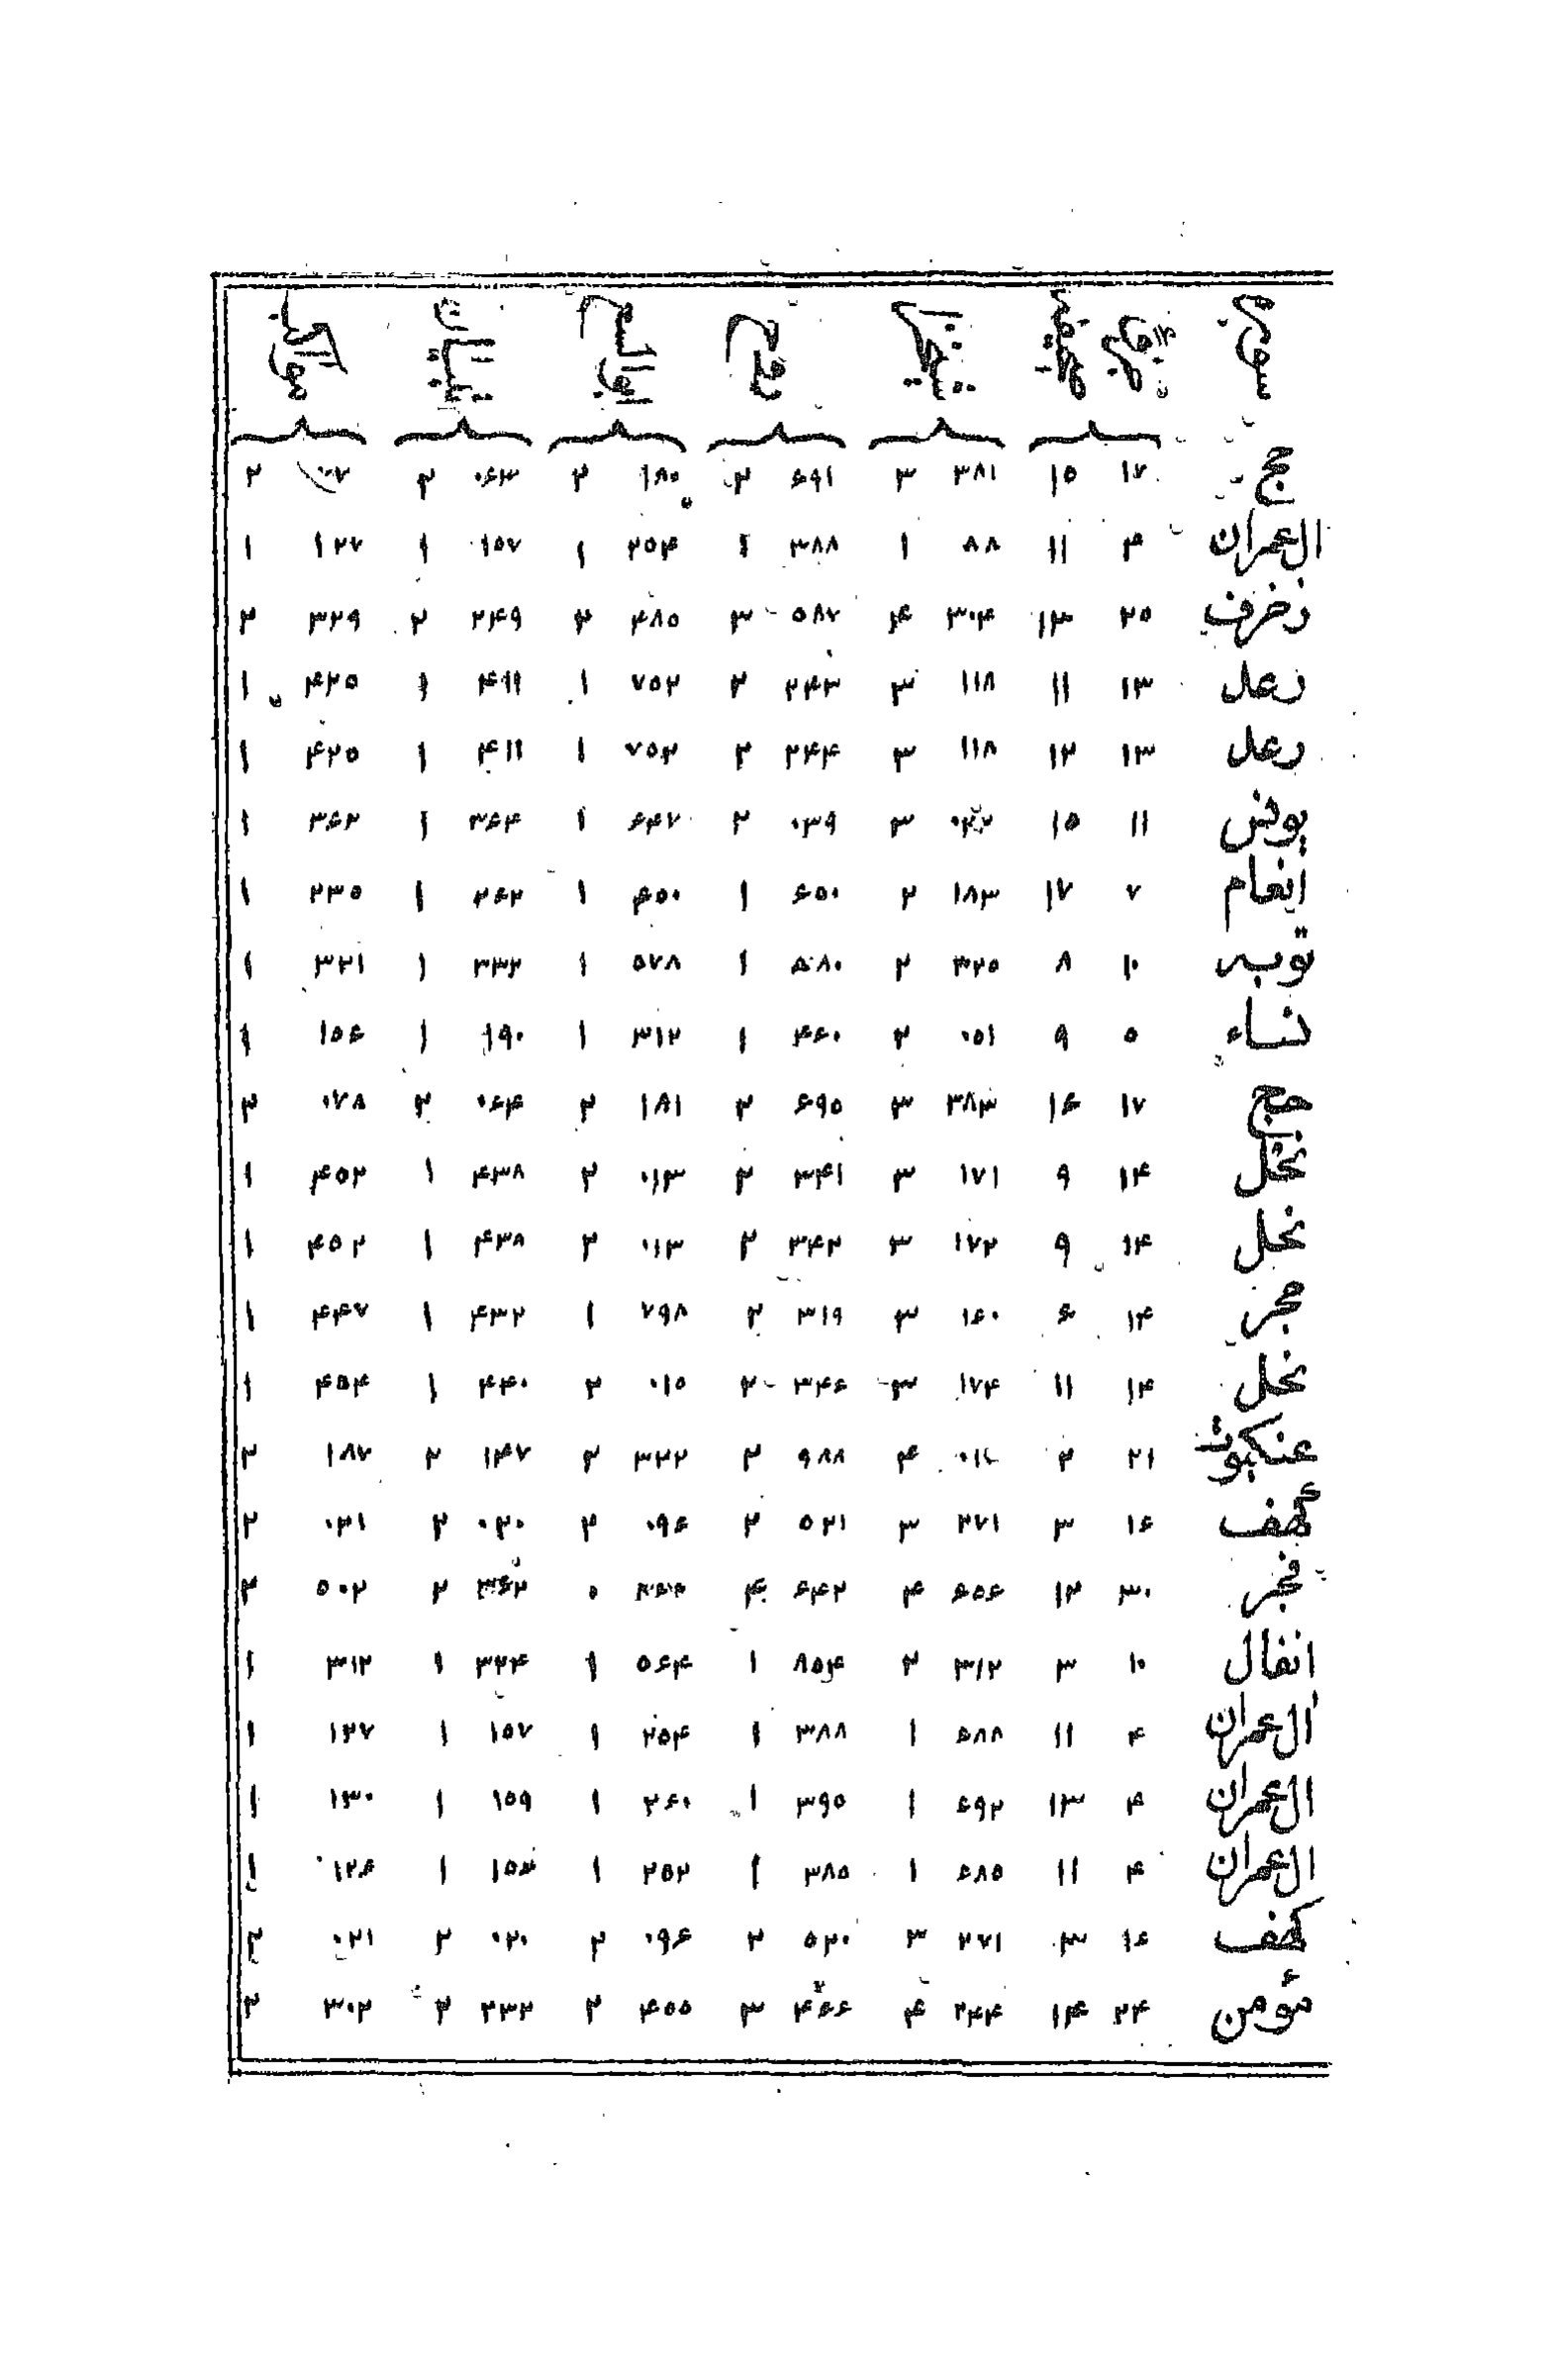 حج ۱۷ ۱۵ ۳۸۱ ۳ ۶۹۱ ۲ ۱۸۰ ۲ ۰۶۳ ۲ ۲
ال عمران ۴ ۱۱ ۸۸ ۱ ۳۸۸ ۱ ۲۵۴ ۱ ۱۵۷ ۱ ۱۲۷ ۱
زخرف ۲۵ ۱۳ ۳۰۴ ۴ ۵۸۷ ۳ ۴۸۵ ۲ ۲۴۹ ۲ ۳۲۹ ۲
رعد ۱۳ ۱۱ ۱۱۸ ۳ ۲۴۳ ۲ ۷۵۲ ۱ ۴۱۱ ۱ ۴۲۵ ۱
رعد ۱۳ ۱۲ ۱۱۸ ۳ ۲۴۴ ۲ ۷۵۲ ۱ ۴۱۱ ۱ ۴۲۵ ۱
یونس ۱۱ ۱۵ ۳ ۰۳۹ ۲ ۶۴۷ ۱ ۳۶۴ ۱ ۳۶۲ ۱
انعام ۷ ۱۷ ۱۸۳ ۲ ۶۵۰ ۱ ۴۵۰ ۱ ۲۶۲ ۱ ۲۳۵ ۱
توبه ۱۰ ۸ ۳۲۵ ۲ ۸۰ ۱ ۵۷۸ ۱ ۳۳۲ ۱ ۳۲۱ ۱
نساء ۵ ۹ ۰۵۱ ۲ ۴۶۰ ۱ ۳۱۲ ۱ ۱۹۰ ۱ ۱۵۶ ۱
حج ۱۷ ۱۶ ۳۸۳ ۳ ۶۹۵ ۲ ۱۸۱ ۲ ۰۶۴ ۲ ۰۷۸ ۲
نحل ۱۴ ۹ ۱۷۱ ۳ ۳۴۱ ۲ ۰۱۳ ۲ ۴۳۸ ۱ ۴۵۲ ۱
نحل ۱۴ ۹ ۱۷۲ ۳ ۳۴۲ ۲ ۰۱۳ ۲ ۴۳۸ ۱ ۴۵۲ ۱
حجر ۱۴ ۶ ۱۶۰ ۳ ۳۱۹ ۲ ۷۹۸ ۱ ۴۳۲ ۱ ۴۴۷ ۱
نحل ۱۴ ۱۱ ۱۷۴ ۳ ۳۴۶ ۲ ۰۱۵ ۲ ۴۴۰ ۱ ۴۵۴ ۱
عنکبوت ۲۱ ۲ ۴ ۹۸۸ ۲ ۳۲۲ ۲ ۱۴۷ ۲ ۱۸۷ ۲
کهف ۱۶ ۳ ۲۷۱ ۳ ۵۲۱ ۲ ۰۹۶ ۲ ۰۲۰ ۲ ۰۲۱ ۲
فجر ۳۰ ۱۴ ۶۵۶ ۴ ۶۴۲ ۴ ۵ ۳۶۲ ۲ ۵۰۲ ۲
انفال ۱۰ ۳ ۳۱۲ ۲ ۸۵۴ ۱ ۵۶۴ ۱ ۳۲۴ ۱ ۳۱۲ ۱
ال عمران ۴ ۱۱ ۵۸۸ ۱ ۳۸۸ ۱ ۲۵۴ ۱ ۱۵۷ ۱ ۱۲۷ ۱
ال عمران ۴ ۱۳ ۶۹۲ ۱ ۳۹۵ ۱ ۲۶۰ ۱ ۱۵۹ ۱ ۱۳۰ ۱
ال عمران ۴ ۱۱ ۶۸۵ ۱ ۳۸۵ ۱ ۲۵۲ ۱ ۱ ۱۲۶ ۱
کهف ۱۶ ۳ ۲۷۱ ۳ ۵۲۰ ۲ ۰۹۶ ۲ ۰۲۰ ۲ ۰۲۱ ۲
مؤمن ۲۴ ۱۴ ۲۴۴ ۴ ۴۶۶ ۳ ۴۵۵ ۲ ۲۳۲ ۲ ۳۰۲ ۲